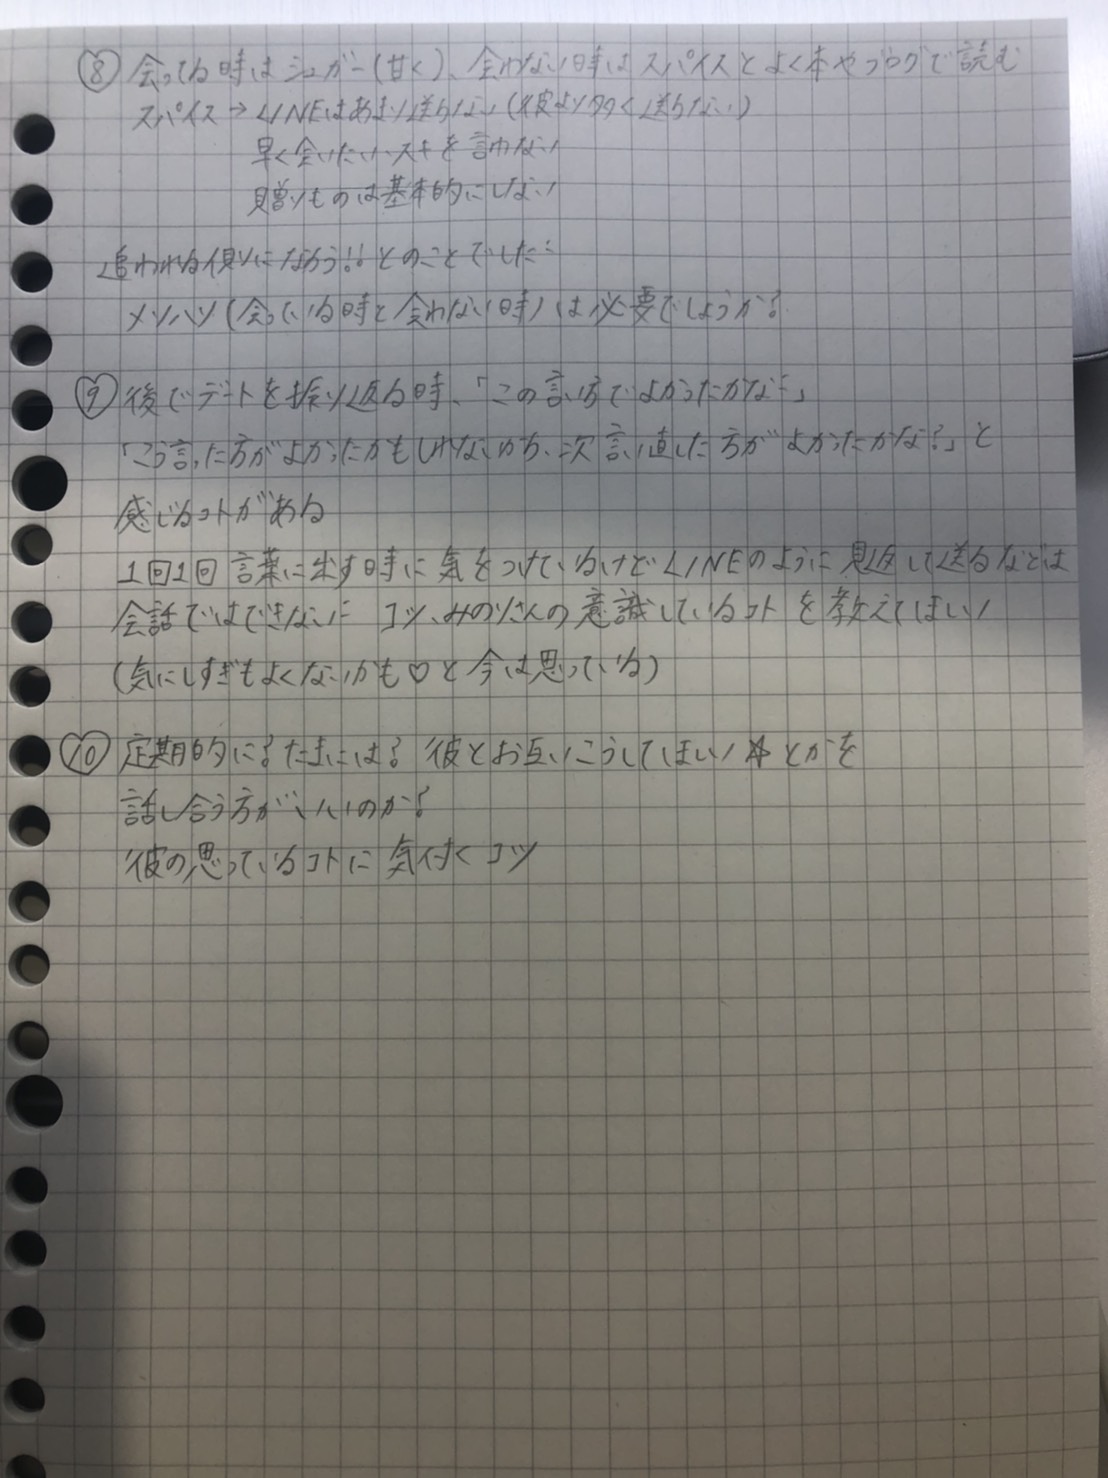 ⑧ 会ってる時はシュガー(甘く)、会わない時はスパイスとよく本やブログで読む
スパイス→LINEはあまり送らない(彼より多く送らない)
早く会いたい、スキを言わない
贈りものは基本的にしない
追われる側になろう!!とのことでした…
メリハリ(会っている時と会わない時)は必要でしょうか?
⑨ 後でデートを振り返る時、「この言い方でよかったかな…」
「こう言った方がよかったかもしれないから、次言い直した方がよかったかな?」と
感じるコトがある
1回1回 言葉に出す時に気をつけているけどLINEのように見返して送るなどは
会話ではできない… コツ、みのりさんの意識しているコトを教えてほしい
(気にしすぎもよくないかも♡と今は思っている)
⑩ 定期的に?たまには?彼とお互いこうしてほしい☆とかを
話し合う方がいいのか?
彼の思っているコトに気付くコツ